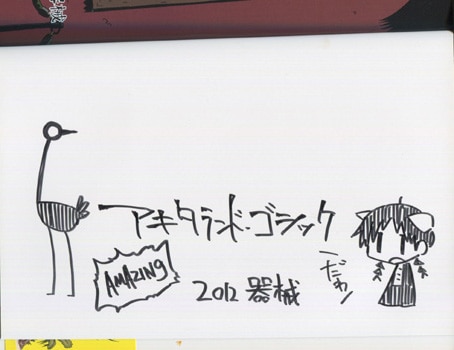 器械
アキタランド・ゴシック
だわ!
AMAZING
2012 器械